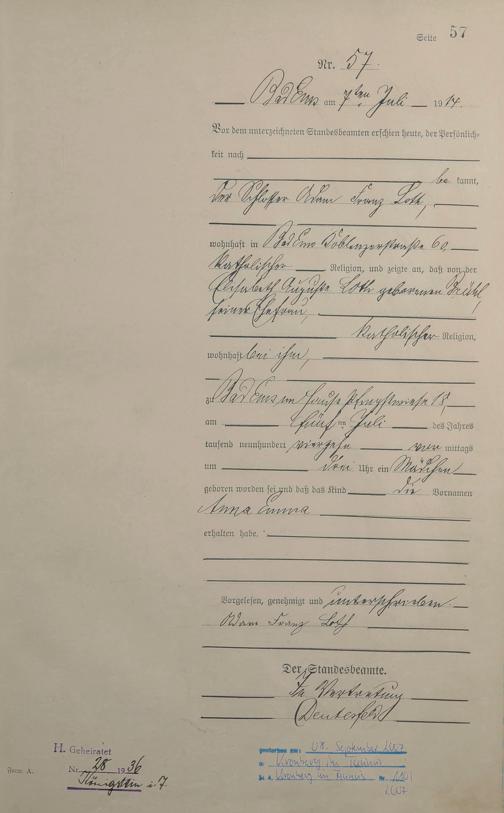 Seite 57
Nr. 57.
Bad Ems am 7ten Juli 1914.
Vor dem unterzeichneten Standesbeamten erschien heute, der Persönlich-
keit nach
be kannt,
der Schlosser Adam Franz Loth,
wohnhaft in Bad Ems Coblenzerstraße 60,
katholischer Religion, und zeigte an, daß von der
Elisabeth Auguste Loth geborenen
seiner Ehefrau,
katholischer Religion,
wohnhaft bei ihm,
zu Bad Ems im Hause Pfingstwiese 15,
am fünften Juli des Jahres
tausend neunhundert vierzehn vor mittags
um drei Uhr ein Mädchen
geboren worden sei und daß das Kind die Vornamen
Anna Emma
erhalten habe.
Vorgelesen, genehmigt und unterschrieben.
Adam Franz Loth
Der Standesbeamte.
In Vertretung
H. Geheiratet
Nr. 28 1936
Königstein i. T.
Form A.
gestorben am: 08. September 2007
in Kronberg im Taunus
Sta. Kronberg im Taunus Nr.
2007